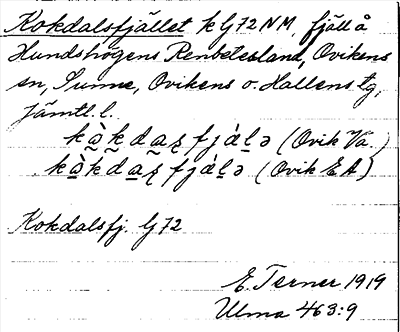 Kokdalsfjället k G72 NM, fjäll å
Hundshögens Renbetesland, Ovikens
sn, Sunne, Ovikens o. Hallens tg,
Jämtl. l.
(Ovik Va.)
(Ovik E A)
Kokdalsfj. G72
E. Terner 1919
Ulma 463:9